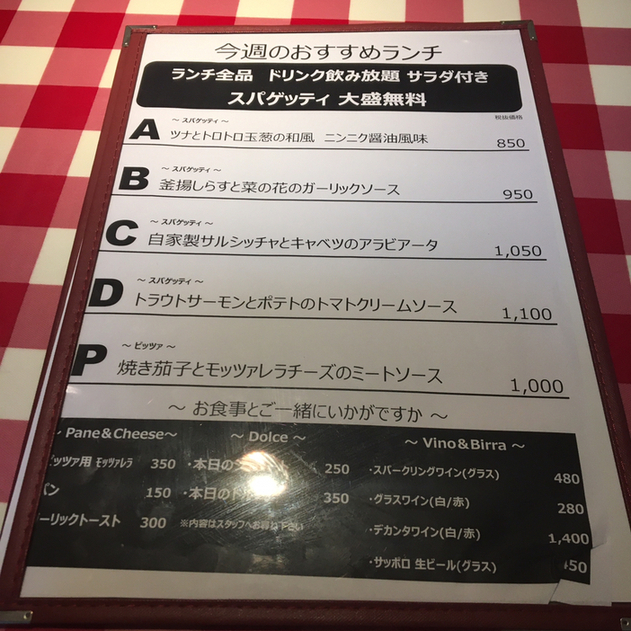 今週のおすすめランチ
ランチ全品 ドリンク飲み放題 サラダ付き
スパゲッティ 大盛無料
税抜価格
A ～ スパゲッティ ～
ツナとトロトロ玉葱の和風 ニンニク醤油風味 850
B ～ スパゲッティ ～
釜揚しらすと菜の花のガーリックソース 950
C ～ スパゲッティ ～
自家製サルシッチャとキャベツのアラビアータ 1,050
D ～ スパゲッティ ～
トラウトサーモンとポテトのトマトクリームソース 1,100
P ～ ピッツァ ～
焼き茄子とモッツァレラチーズのミートソース 1,000
～ お食事とご一緒にいかがですか ～
Pane&Cheese～
ピッツァ用 モッツァレラ 350
パン 150
ーリックトースト 300
～ Dolce ～
・本日の 250
・本日のド 350
※内容はスタッフへお尋ね下さい
～ Vino&Birra ～
・スパークリングワイン(グラス) 480
・グラスワイン(白/赤) 280
・デカンタワイン(白/赤) 1,400
・サッポロ 生ビール(グラス) 50